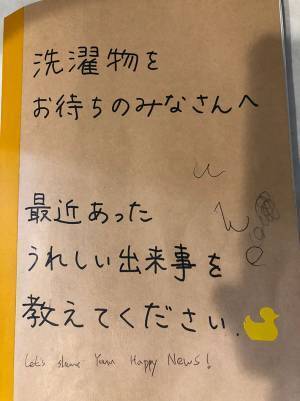 洗濯物を
お待ちのみなさんへ
最近あった
うれしい出来事を
教えてください.
Let's share Your Happy News!